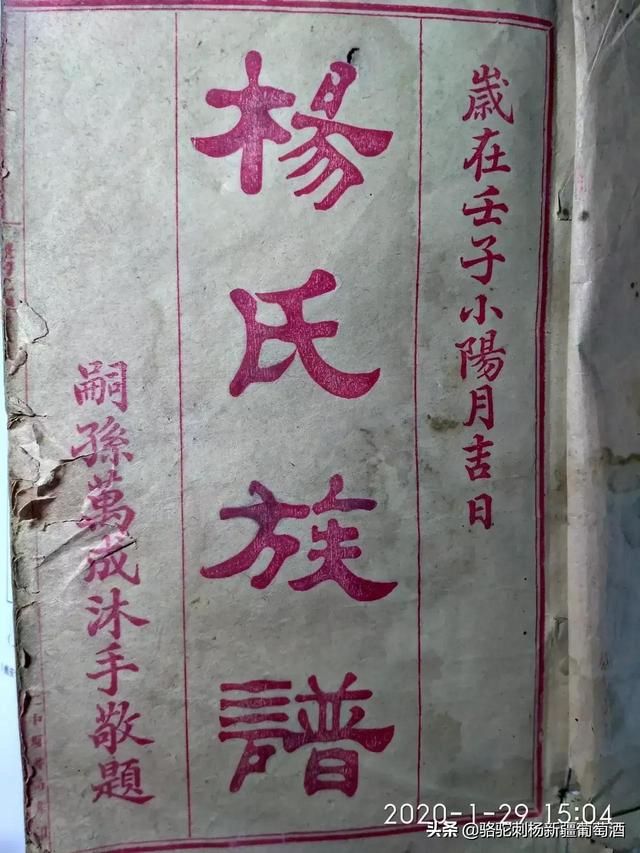 歲在壬子小陽月吉日
楊氏族譜
嗣孫萬成沐手敬題
2020-1-29 15:04
头条 @骆驼刺杨新疆葡萄酒